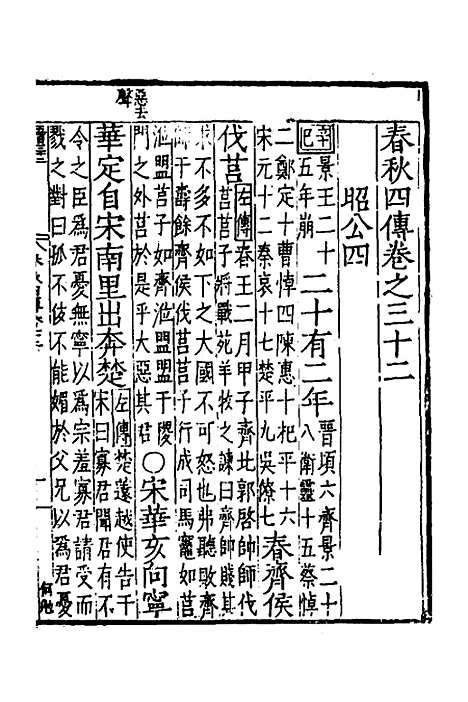 春秋四傳卷之三十二
昭公四
辛巳景王二十
五年崩
二十有二年
晉頃六齊景二十
八衛靈十五蔡悼
二鄭定十曹悼四陳惠十杞平十六
宋元十二秦哀十七楚平九吳僚七
春齊侯
伐莒
左傳春王二月甲子齊北郭啓帥師伐
莒莒子將戰苑羊牧之諫曰齊帥賤其
求不多不如下之大國不可怒也弗聽敗齊
師于壽餘齊侯伐莒莒子行成司馬竈如莒
涖盟莒子如齊涖盟盟于稷
門之外莒於是乎大惡其君
○宋華亥向寧
惡去
聲
華定自宋南里出奔楚
左傳楚薳越使告于
宋曰寡君聞君有不
令之臣爲君憂無寧以爲宗羞寡君請受而
戮之對曰孤不佞不能媚於父兄以爲君憂